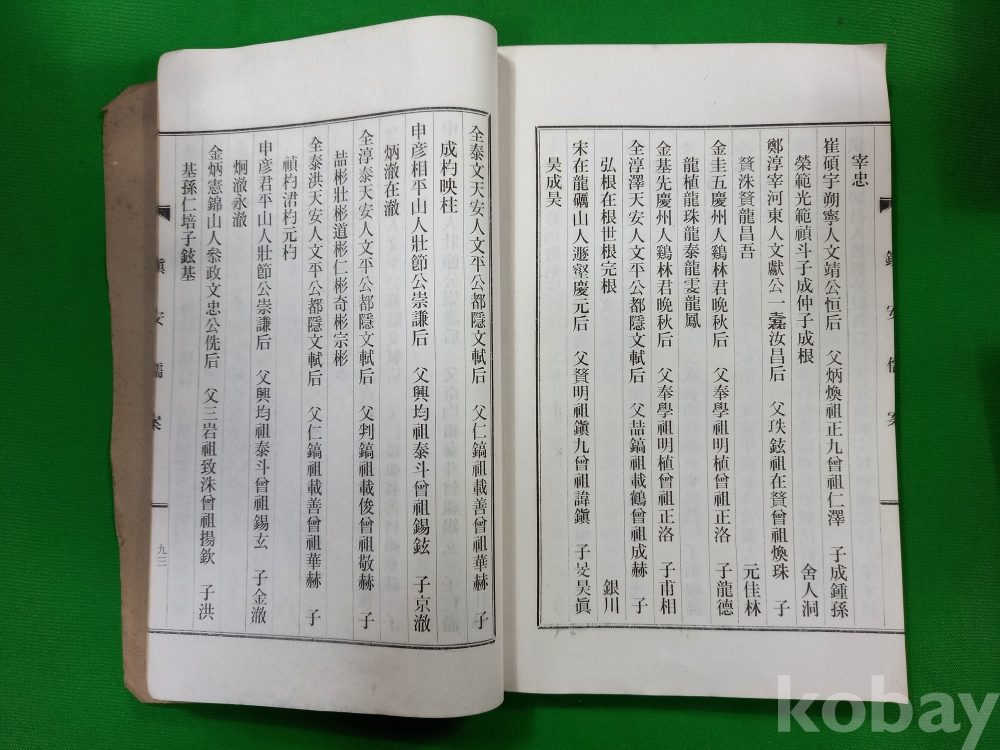 宰忠
崔碩宇朔寧人文靖公恒后 父炳煥祖正九曾祖仁澤 子成鍾孫
榮範光範禎斗子成仲子成根 舍人洞
鄭淳宰河東人文獻公一蠹汝昌后 父玞鉉祖在贇曾祖煥珠 子
贇洙贇龍昌吾 元佳林
金圭五慶州人鷄林君晚秋后 父奉學祖明植曾祖正洛 子龍德
龍植龍珠龍泰龍雯龍鳳
金基先慶州人鷄林君晚秋后 父奉學祖明植曾祖正洛 子甫相
全淳澤天安人文平公都隱文軾后 父喆鎬祖載鶴曾祖成赫 子
弘根在根世根完根 銀川
宋在龍礪山人遯壑慶元后 父贇明祖鎭九曾祖諱鎭 子旻昊眞
昊成昊
全泰文天安人文平公都隱文軾后 父仁鎬祖載善曾祖華赫 子
成杓映柱
申彦相平山人壯節公崇謙后 父興均祖泰斗曾祖錫鉉 子京澈
炳澈在澈
全淳泰天安人文平公都隱文軾后 父判鎬祖載俊曾祖敬赫 子
喆彬壯彬道彬仁彬奇彬宗彬
全泰洪天安人文平公都隱文軾后 父仁鎬祖載善曾祖華赫 子
禎杓涒杓元杓
申彦君平山人壯節公崇謙后 父興均祖泰斗曾祖錫玄 子金澈
炯澈永澈
金炳憲錦山人叅政文忠公侁后 父三岩祖致洙曾祖揚欽 子洪
基孫仁培子鉉基
鎭安儒案
九三
kobay